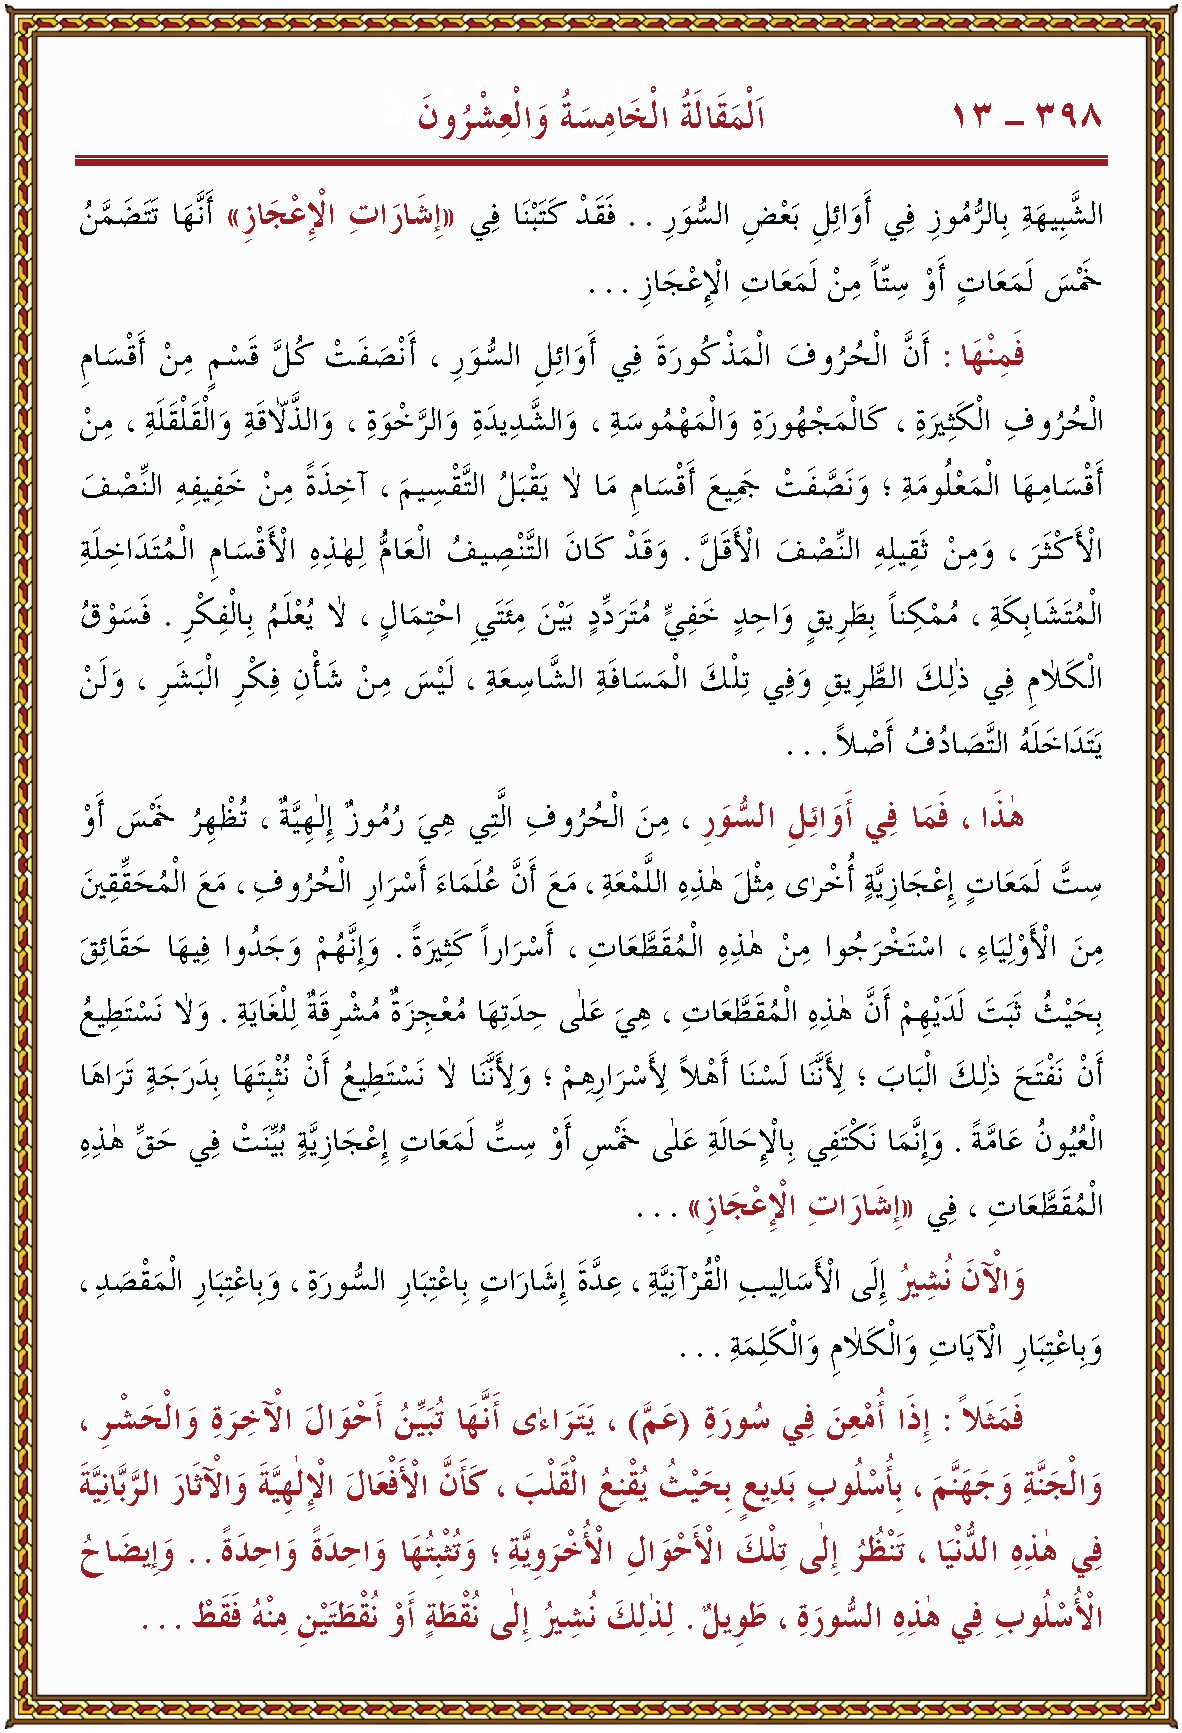 ٣٩٨ ـ ١٣ اَلْمَقَالَةُ الْخَامِسَةُ وَالْعِشْرُونَ
الشَّبِيهَةِ بِالرُّمُوزِ فِي أَوَائِلِ بَعْضِ السُّوَرِ . . فَقَدْ كَتَبْنَا فِي «إِشَارَاتِ الْإِعْجَازِ» أَنَّهَا تَتَضَمَّنُ
خَمْسَ لَمَعَاتٍ أَوْ سِتّاً مِنْ لَمَعَاتِ الْإِعْجَازِ . . .
فَمِنْهَا : أَنَّ الْحُرُوفَ الْمَذْكُورَةَ فِي أَوَائِلِ السُّوَرِ ، أَنْصَفَتْ كُلَّ قِسْمٍ مِنْ أَقْسَامِ
الْحُرُوفِ الْكَثِيرَةِ ، كَالْمَجْهُورَةِ وَالْمَهْمُوسَةِ ، وَالشَّدِيدَةِ وَالرَّخْوَةِ ، وَالذَّلّاقَةِ وَالْقَلْقَلَةِ ، مِنْ
أَقْسَامِهَا الْمَعْلُومَةِ ؛ وَنَصَّفَتْ جَمِيعَ أَقْسَامِ مَا لَا يَقْبَلُ التَّقْسِيمَ ، آخِذَةً مِنْ خَفِيفِهِ النِّصْفَ
الْأَكْثَرَ ، وَمِنْ ثَقِيلِهِ النِّصْفَ الْأَقَلَّ . وَقَدْ كَانَ التَّنْصِيفُ الْعَامُّ لِهٰذِهِ الْأَقْسَامِ الْمُتَدَاخِلَةِ
الْمُتَشَابِكَةِ ، مُمْكِناً بِطَرِيقٍ وَاحِدٍ خَفِيٍّ مُتَرَدِّدٍ بَيْنَ مِئَتَيِ احْتِمَالٍ ، لَا يُعْلَمُ بِالْفِكْرِ . فَسَوْقُ
الْكَلَامِ فِي ذٰلِكَ الطَّرِيقِ وَفِي تِلْكَ الْمَسَافَةِ الشَّاسِعَةِ ، لَيْسَ مِنْ شَأْنِ فِكْرِ الْبَشَرِ ، وَلَنْ
يَتَدَاخَلَهُ التَّصَادُفُ أَصْلاً . . .
هٰذَا ، فَمَا فِي أَوَائِلِ السُّوَرِ ، مِنَ الْحُرُوفِ الَّتِي هِيَ رُمُوزٌ إِلٰهِيَّةٌ ، تُظْهِرُ خَمْسَ أَوْ
سِتَّ لَمَعَاتٍ إِعْجَازِيَّةٍ أُخْرٰى مِثْلَ هٰذِهِ اللَّمْعَةِ ، مَعَ أَنَّ عُلَمَاءَ أَسْرَارِ الْحُرُوفِ ، مَعَ الْمُحَقِّقِينَ
مِنَ الْأَوْلِيَاءِ ، اسْتَخْرَجُوا مِنْ هٰذِهِ الْمُقَطَّعَاتِ ، أَسْرَاراً كَثِيرَةً . وَإِنَّهُمْ وَجَدُوا فِيهَا حَقَائِقَ
بِحَيْثُ ثَبَتَ لَدَيْهِمْ أَنَّ هٰذِهِ الْمُقَطَّعَاتِ ، هِيَ عَلٰى حِدَتِهَا مُعْجِزَةٌ مُشْرِقَةٌ لِلْغَايَةِ . وَلَا نَسْتَطِيعُ
أَنْ نَفْتَحَ ذٰلِكَ الْبَابَ ؛ لِأَنَّنَا لَسْنَا أَهْلاً لِأَسْرَارِهِمْ ؛ وَلِأَنَّنَا لَا نَسْتَطِيعُ أَنْ نُثْبِتَهَا بِدَرَجَةٍ تَرَاهَا
الْعُيُونُ عَامَّةً . وَإِنَّمَا نَكْتَفِي بِالْإِحَالَةِ عَلٰى خَمْسِ أَوْ سِتِّ لَمَعَاتٍ إِعْجَازِيَّةٍ بُيِّنَتْ فِي حَقِّ هٰذِهِ
الْمُقَطَّعَاتِ ، فِي «إِشَارَاتِ الْإِعْجَازِ» . . .
وَالْآنَ نُشِيرُ إِلَى الْأَسَالِيبِ الْقُرْآنِيَّةِ ، عِدَّةَ إِشَارَاتٍ بِاعْتِبَارِ السُّورَةِ ، وَبِاعْتِبَارِ الْمَقْصَدِ ،
وَبِاعْتِبَارِ الْآيَاتِ وَالْكَلَامِ وَالْكَلِمَةِ . . .
فَمَثَلاً : إِذَا أُمْعِنَ فِي سُورَةِ (عَمَّ) ، يَتَرَاءٰى أَنَّهَا تُبَيِّنُ أَحْوَالَ الْآخِرَةِ وَالْحَشْرِ ،
وَالْجَنَّةِ وَجَهَنَّمَ ، بِأُسْلُوبٍ بَدِيعٍ بِحَيْثُ يُقْنِعُ الْقَلْبَ ، كَأَنَّ الْأَفْعَالَ الْإِلٰهِيَّةَ وَالْآثَارَ الرَّبَّانِيَّةَ
فِي هٰذِهِ الدُّنْيَا ، تَنْظُرُ إِلٰى تِلْكَ الْأَحْوَالِ الْأُخْرَوِيَّةِ ؛ وَتُثْبِتُهَا وَاحِدَةً وَاحِدَةً . . وَإِيضَاحُ
الْأُسْلُوبِ فِي هٰذِهِ السُّورَةِ ، طَوِيلٌ . لِذٰلِكَ نُشِيرُ إِلٰى نُقْطَةٍ أَوْ نُقْطَتَيْنِ مِنْهُ فَقَطْ . . .